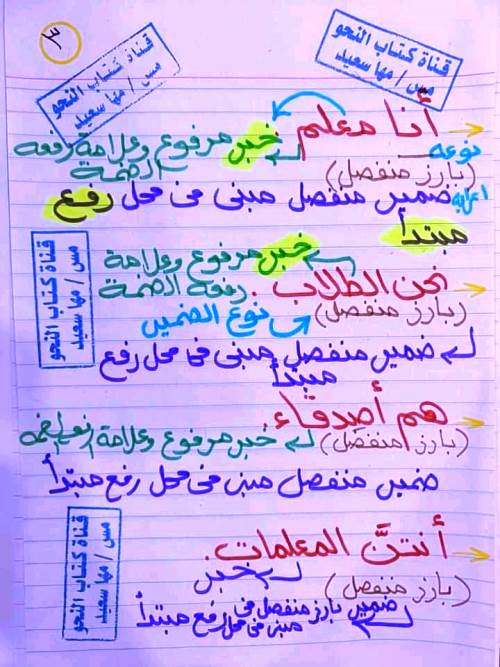 ٣
قناة كتاب النحو
مس / مها سعيد
قناة كتاب النحو
مس / مها سعيد
أنا معلم
خبر مرفوع وعلامة رفعه
الضمة
نوعه
(بارز منفصل)
اعرابه ضمير منفصل مبنى فى محل رفع
مبتدأ
خبر مرفوع وعلامة
رفعة الضمة
نحن الطلاب.
(بارز منفصل)
نوع الضمير
ضمير منفصل مبنى فى محل رفع
مبتدأ
قناة كتاب النحو
مس / مها سعيد
هم أصدقاء.
(بارز منفصل) خبر مرفوع وعلامة
ضمير منفصل مبنى فى محل رفع مبتدأ
أنتنَّ المعلمات.
خبر
(بارز منفصل)
ضمير بارز منفصل فى
مبنى فى محل رفع مبتدأ
قناة كتاب النحو
مس / مها سعيد